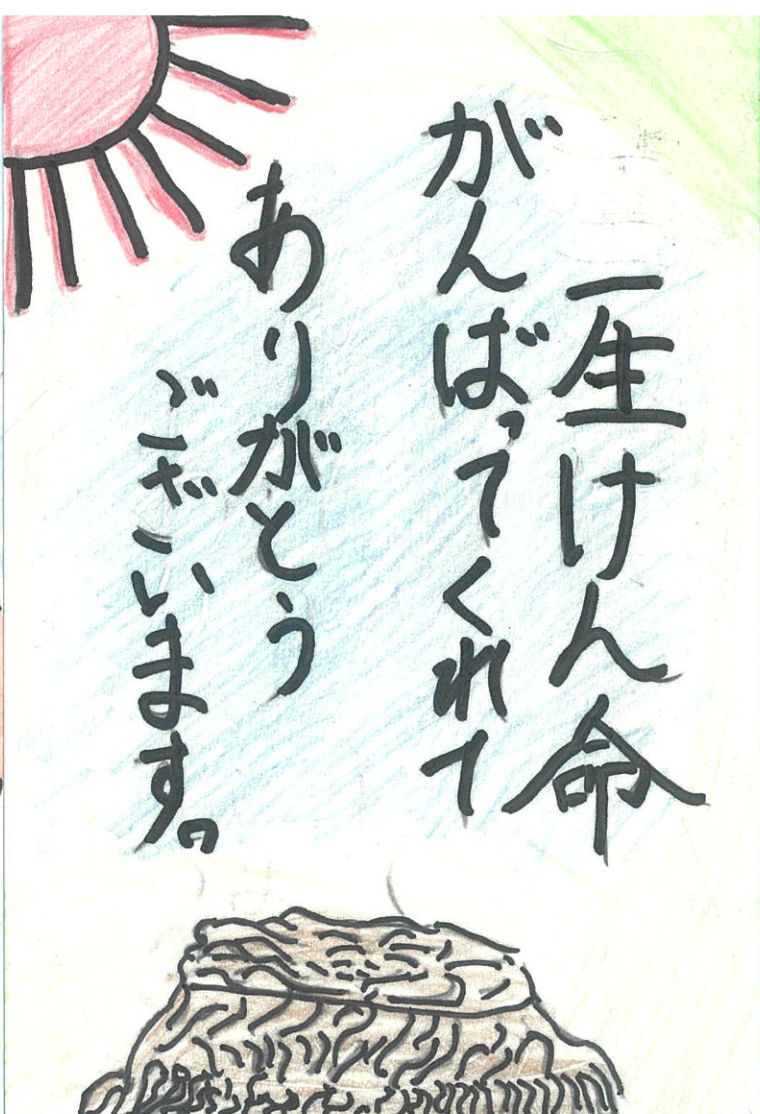 一生けん命
がんばってくれて
ありがとう
ございます。